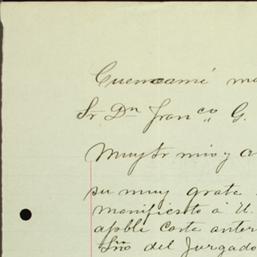 Cuencamé
Sr. Dn. Franco. G.
Muy Sr mio y a
su muy grata
manifiesto á U.
apble corte anter
Srio del Jurgado